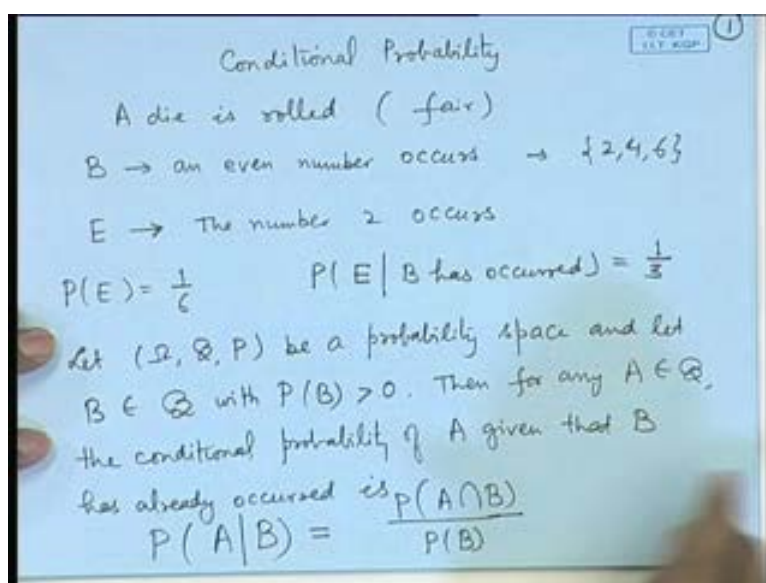 Conditional Probability
© CET
I.I.T. KGP
1
A die is rolled ( fair)
B → an even number occurs → {2,4,6}
E → The number 2 occurs
P(E) = 1/6 P( E | B has occurred) = 1/3
Let (Ω, 𝓑, P) be a probability space and let
B ∈ 𝓑 with P(B) > 0. Then for any A ∈ 𝓑,
the conditional probability of A given that B
has already occurred is
P( A | B) = P(A∩B)/P(B)